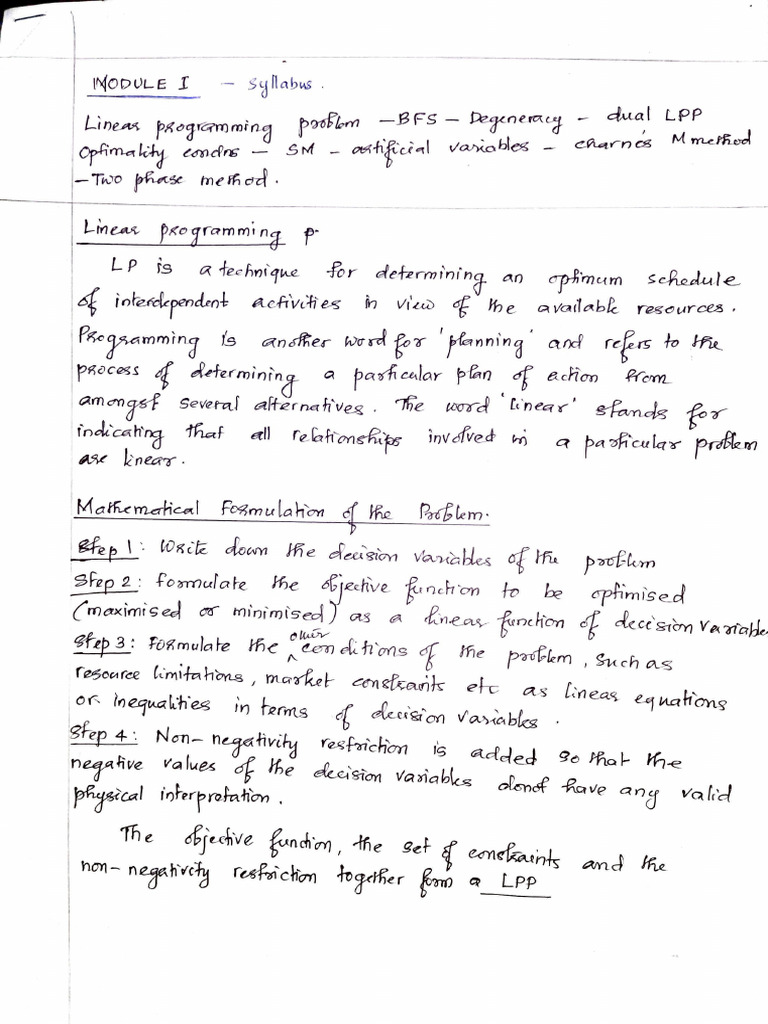 MODULE I - Syllabus.
Linear programming problem - BFS - Degeneracy - dual LPP
Optimality condns - SM - artificial variables - charne's M method
- Two phase method.
Linear programming p.
LP is a technique for determining an optimum schedule
of interdependent activities in view of the available resources.
Programming is another word for 'planning' and refers to the
process of determining a particular plan of action from
amongst several alternatives. The word 'linear' stands for
indicating that all relationships involved in a particular problem
are linear.
Mathematical Formulation of the Problem.
Step 1: Write down the decision variables of the problem
Step 2: Formulate the objective function to be optimised
(maximised or minimised) as a linear function of decision variables
Step 3: Formulate the other conditions of the problem, such as
resource limitations, market constraints etc as linear equations
or inequalities in terms of decision variables.
Step 4: Non-negativity restriction is added so that the
negative values of the decision variables donot have any valid
physical interpretation.
The objective function, the set of constraints and the
non-negativity restriction together form a LPP